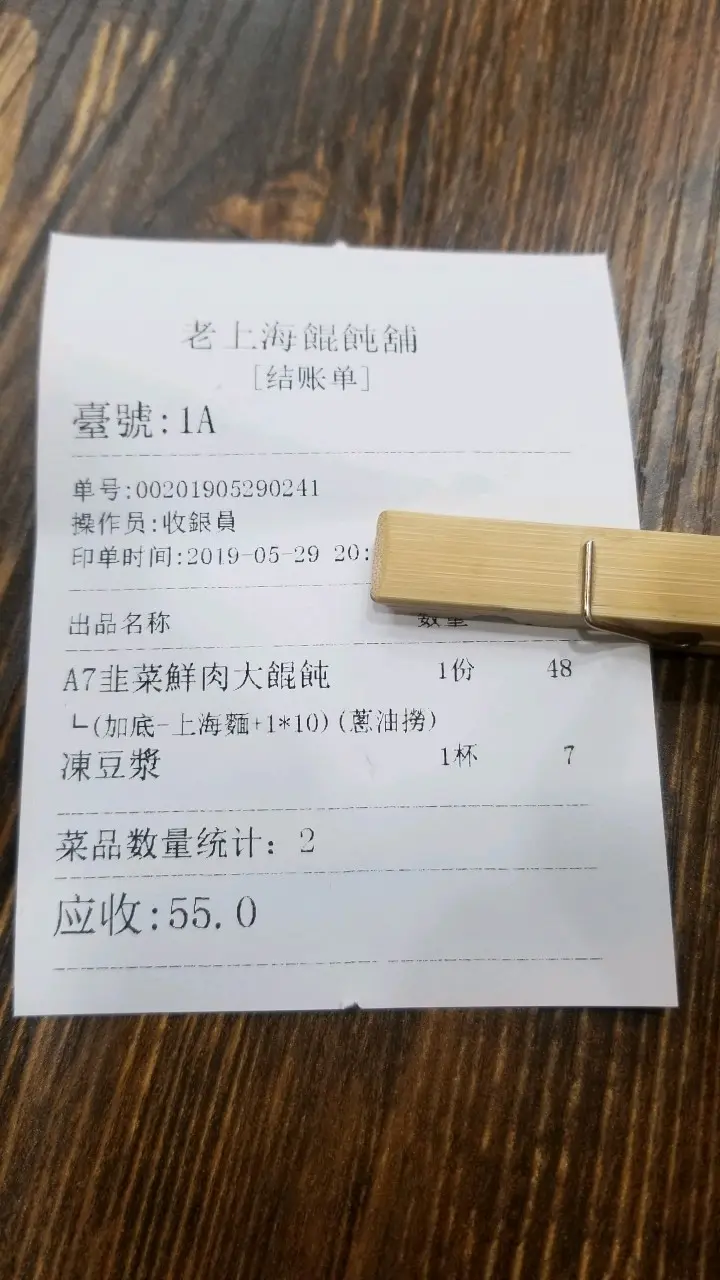 老上海餛飩舖
[结账单]
臺號:1A
单号:00201905290241
操作员:收銀員
印单时间:2019-05-29 20:
出品名称 数量
A7韭菜鮮肉大餛飩 1份 48
┗(加底-上海麵+1*10)(蔥油撈)
凍豆漿 1杯 7
菜品数量统计: 2
应收:55.0